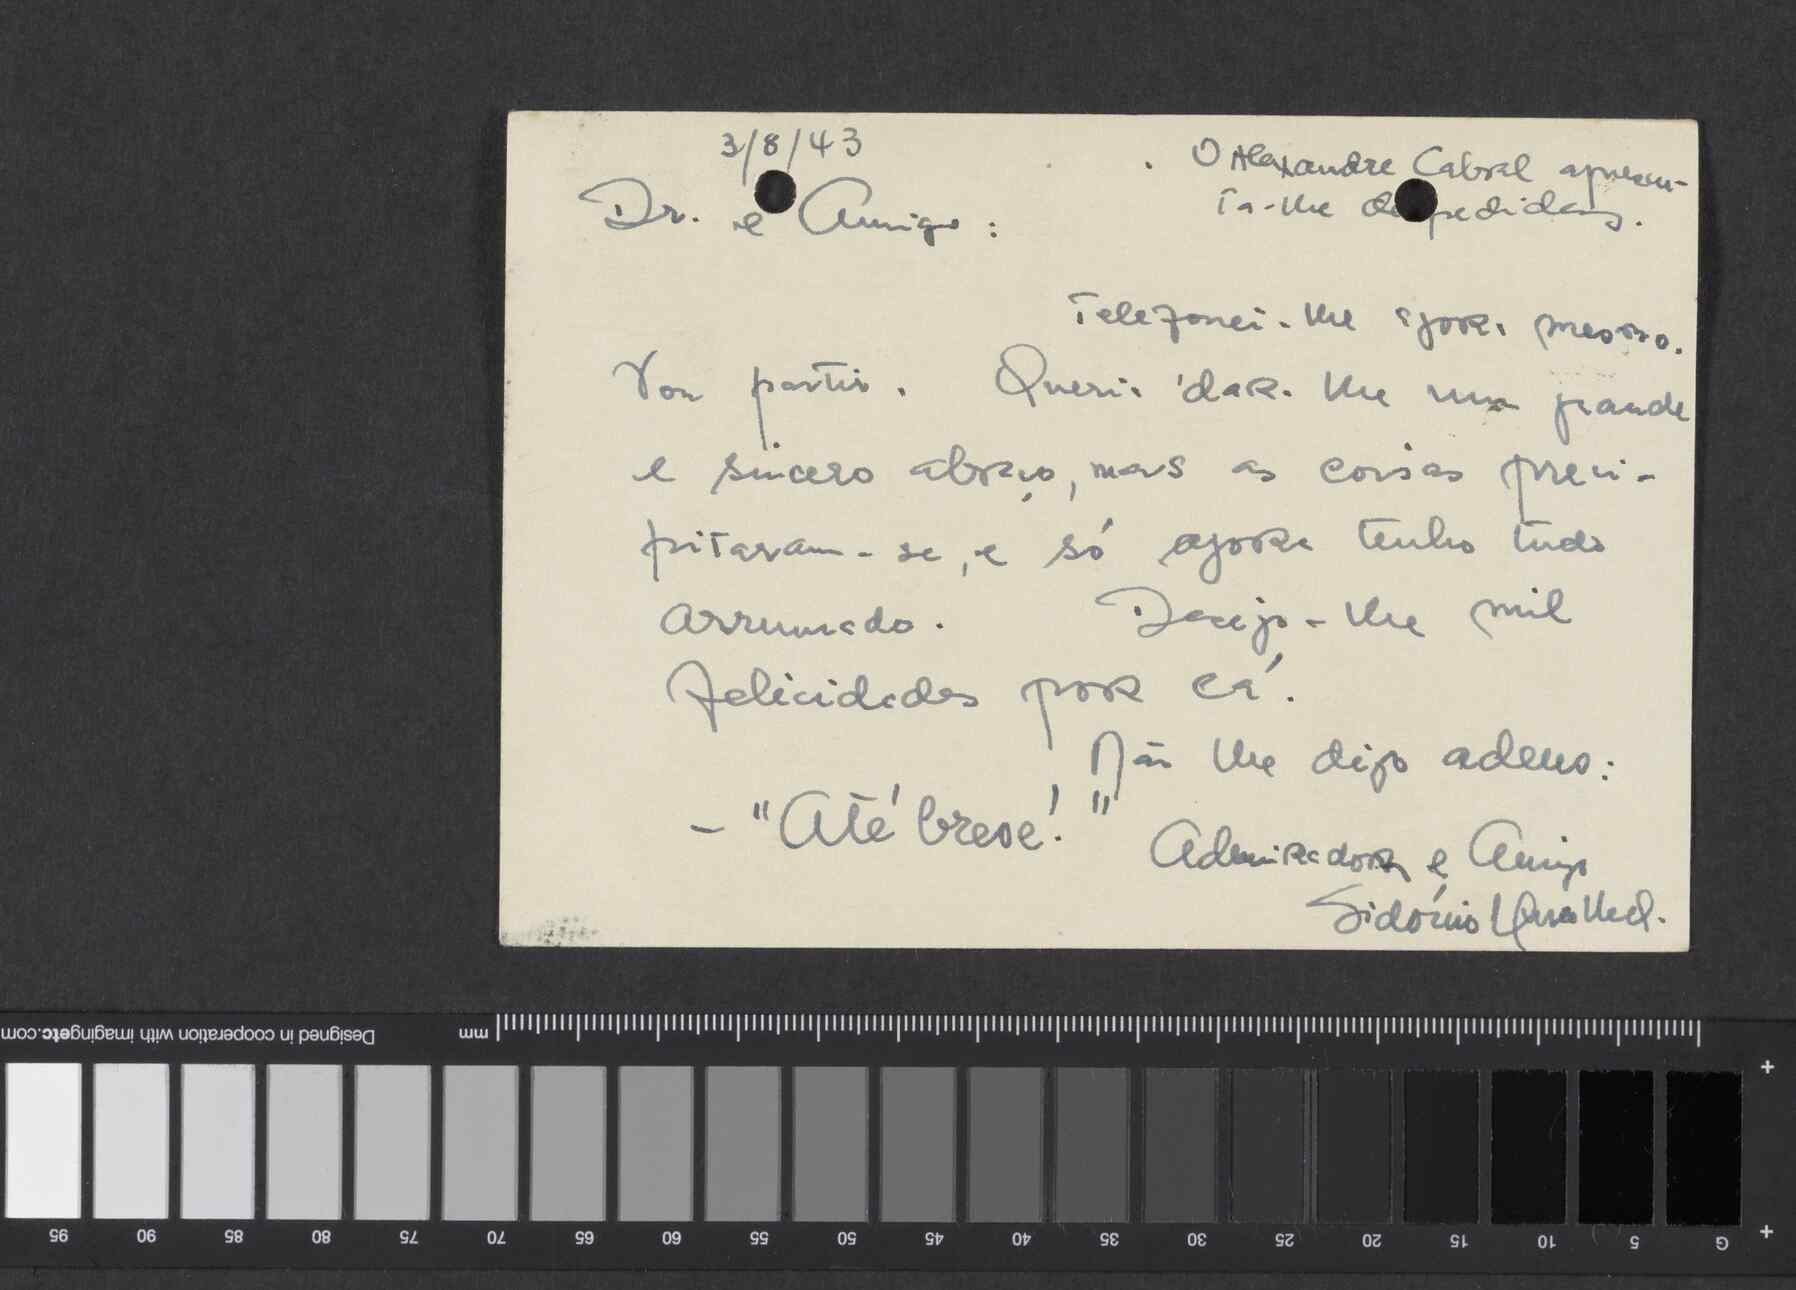 3/8/43
O Alexandre Cabral apresen-
ta-lhe despedidas.
Dr. e Amigo:
Telefonei-lhe agora mesmo.
Vou partir. Queria dar-lhe um grande
e sincero abraço, mas as coisas preci-
pitaram-se, e só agora tenho tudo
arrumado. Desejo-lhe mil
felicidades por cá.
Não lhe digo adeus:
- "Até breve!"
Admirador e Amigo
Sidónio
Designed in cooperation with imagingetc.com
mm
95 90 85 80 75 70 65 60 55 50 45 40 35 30 25 20 15 10 5 G